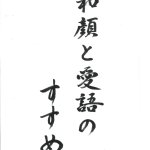 和顔と愛語の
すすめ